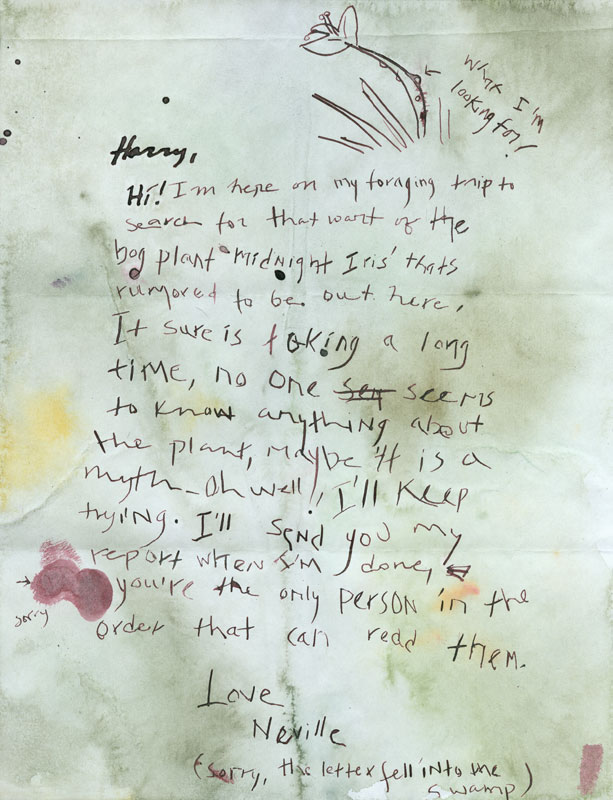 What I'm
looking for!
Harry,
Hi! I'm here on my foraging trip to
search for that wart of the
bog plant "Midnight Iris" thats
rumored to be out here.
It sure is taking a long
time, no one seems
to know anything about
the plant, maybe it is a
myth - oh well!, I'll keep
trying. I'll send you my
report when I'm done,
you're the only person in the
sorry
order that can read them.
Love
Neville
(sorry, the letter fell into the
swamp)